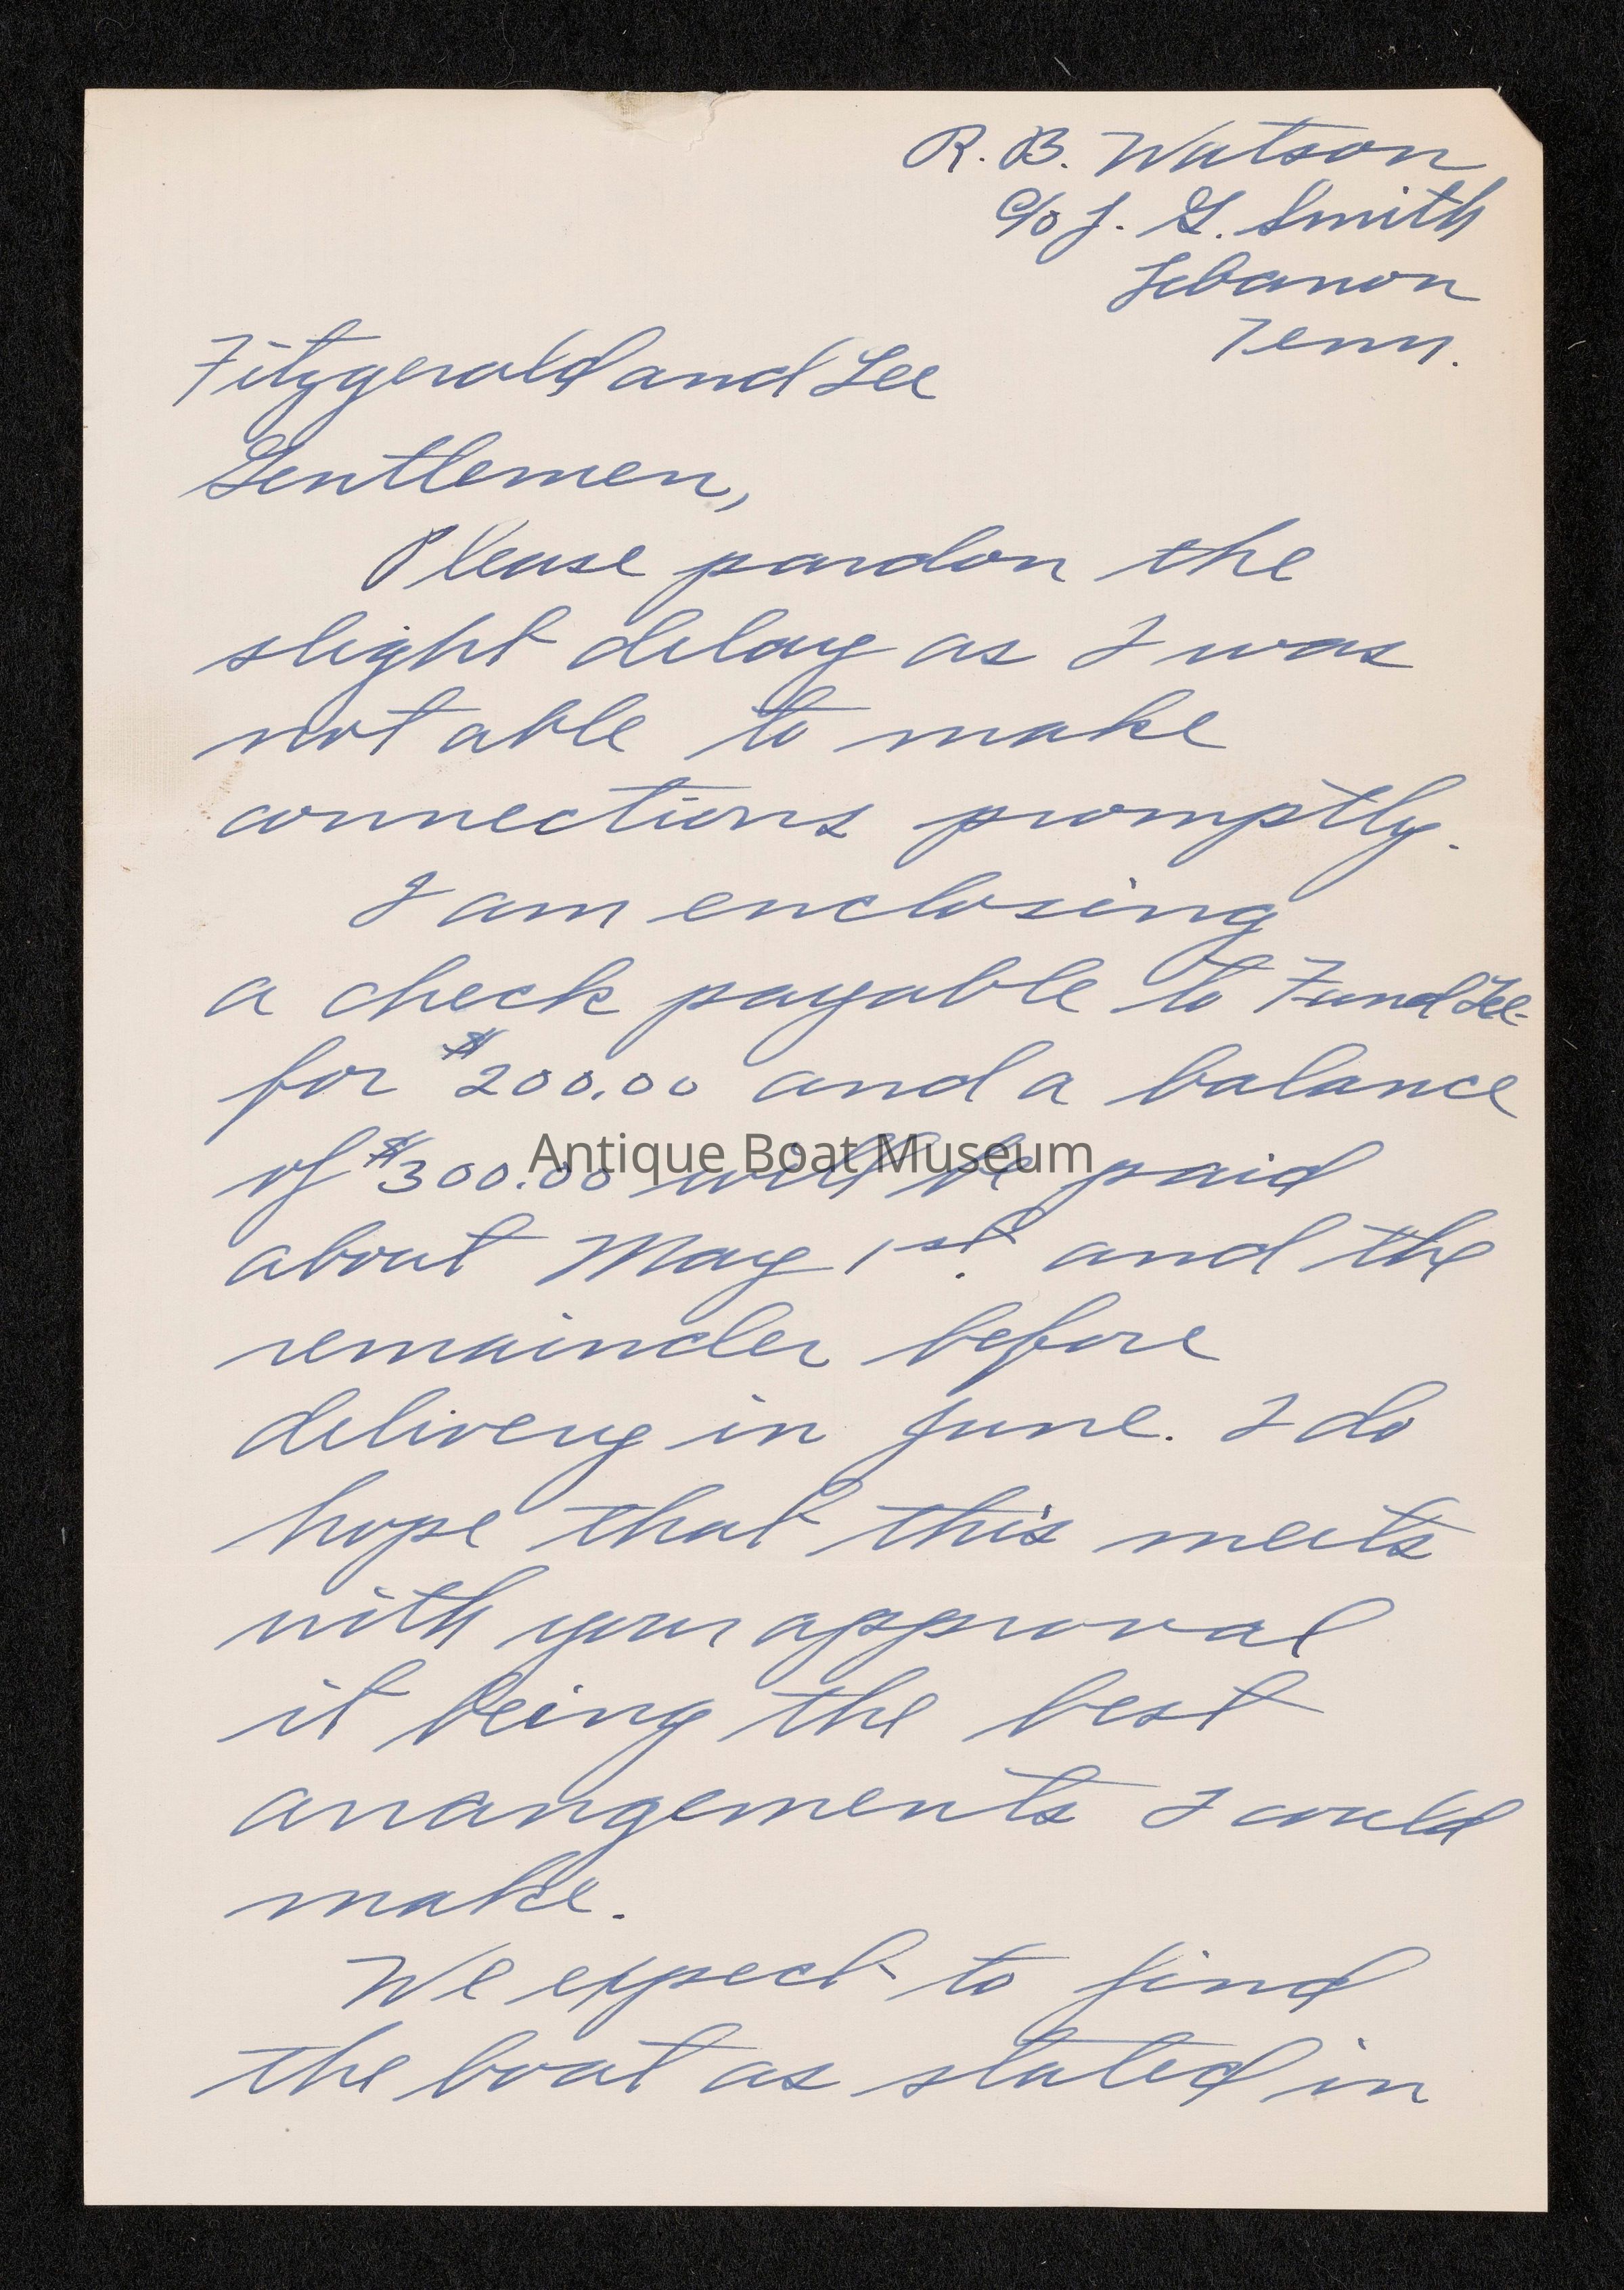 R. B. Watson
c/o J. G. Smith
Lebanon
Tenn.
Fitzgerald and Lee
Gentlemen,
Please pardon the
slight delay as I was
not able to make
connections promptly.
I am enclosing
a check payable to F and Lee
for $200.00 and a balance
of $300.00 will be paid
Antique Boat Museum
about May 1st. and the
remainder before
delivery in June. I do
hope that this meets
with your approval
it being the best
arrangements I could
make.
We expect to find
the boat as stated in